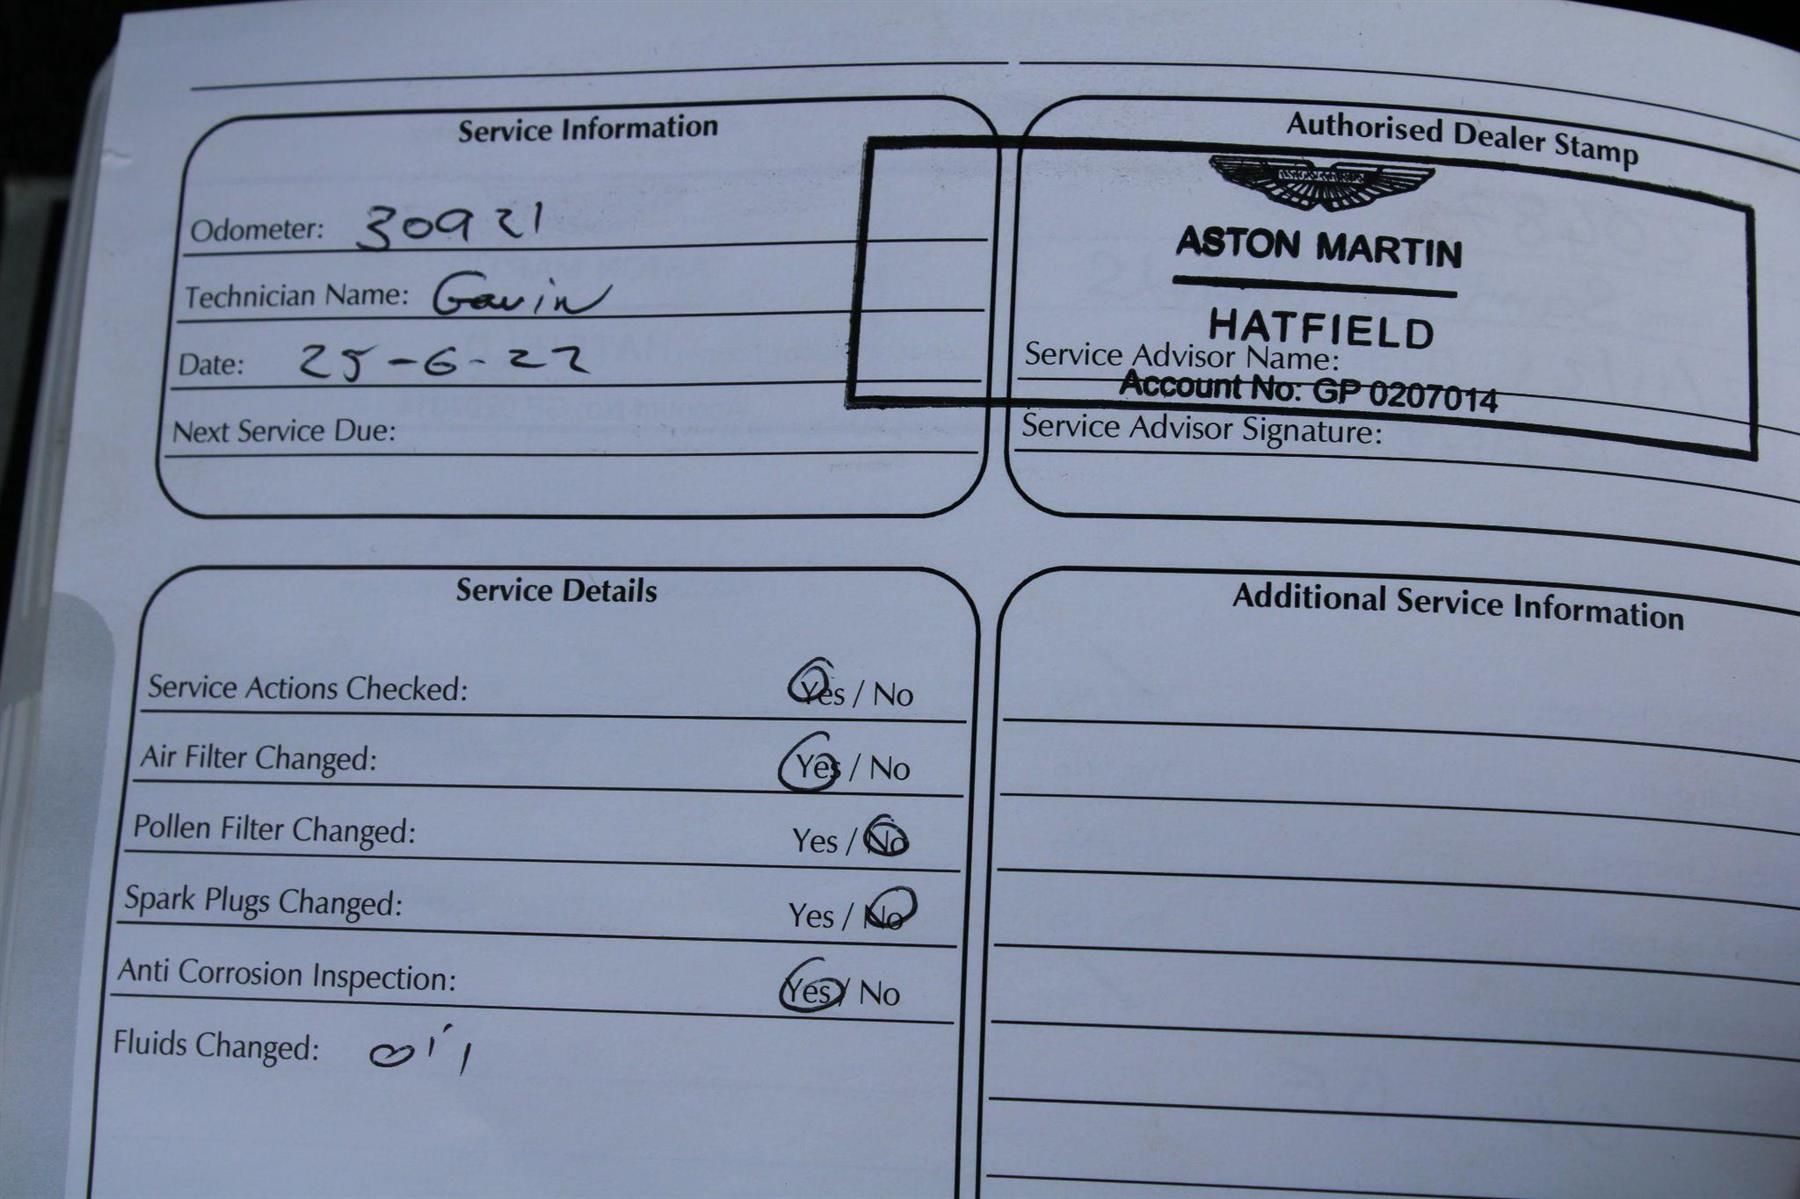 Service Information
Odometer: 30921
Technician Name: Gavin
Date: 25-6-22
Next Service Due:
Authorised Dealer Stamp
ASTON MARTIN
ASTON MARTIN
HATFIELD
Service Advisor Name:
Account No: GP 0207014
Service Advisor Signature:
Service Details
Service Actions Checked: Yes / No
Air Filter Changed: Yes / No
Pollen Filter Changed: Yes / No
Spark Plugs Changed: Yes / No
Anti Corrosion Inspection: Yes / No
Fluids Changed: oil
Additional Service Information